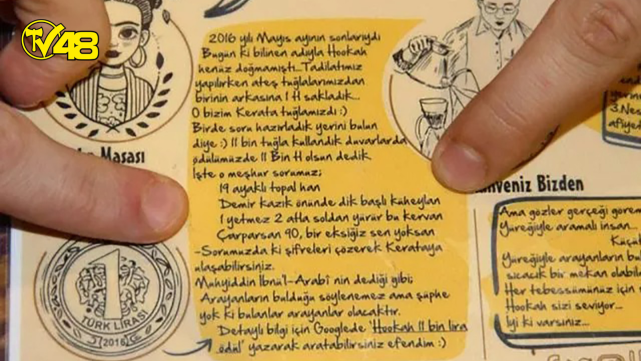 TV48
2016 yılı Mayıs ayının sonlarıydı
Bugün ki bilinen adıyla Hookah
henüz doğmamıştı...Tadilatımız
yapılırken ateş tuğlalarımızdan
birinin arkasına 1 tl sakladık...
O bizim Kerata tuğlamızdı :)
Birde soru hazırladık yerini bulan
diye :) 11 bin tuğla kullandık duvarlarda
ödülümüzde 11 Bin tl olsun dedik
İşte o meşhur sorumuz;
19 ayaklı topal han
Demir kazık önünde dik başlı küheylan
1 yetmez 2 atla soldan yürür bu kervan
Çarparsan 90, bir eksiğiz sen yoksan
-Sorumuzda ki şifreleri çözerek Kerataya
ulaşabilirsiniz.
Muhyiddin İbnü'l-Arabî nin dediği gibi;
Arayanların bulduğu söylenemez ama şüphe
yok ki bulanlar arayanlar olacaktır.
Detaylı bilgi için Googlede 'Hookah 11 bin lira
ödül' yazarak aratabilirsiniz efendim :)
Masası
1
TÜRK LİRASI
2016
yerin
3.Nes
afiyet
hveniz Bizden
Ama gözler gerçeği göre
Yüreğiyle aramalı insan...
Küçü
Yüreğiyle arayanların bul
sıcacık bir mekan olabil
Her tebessümünüz için
Hookah sizi seviyor...
İyi ki varsınız...